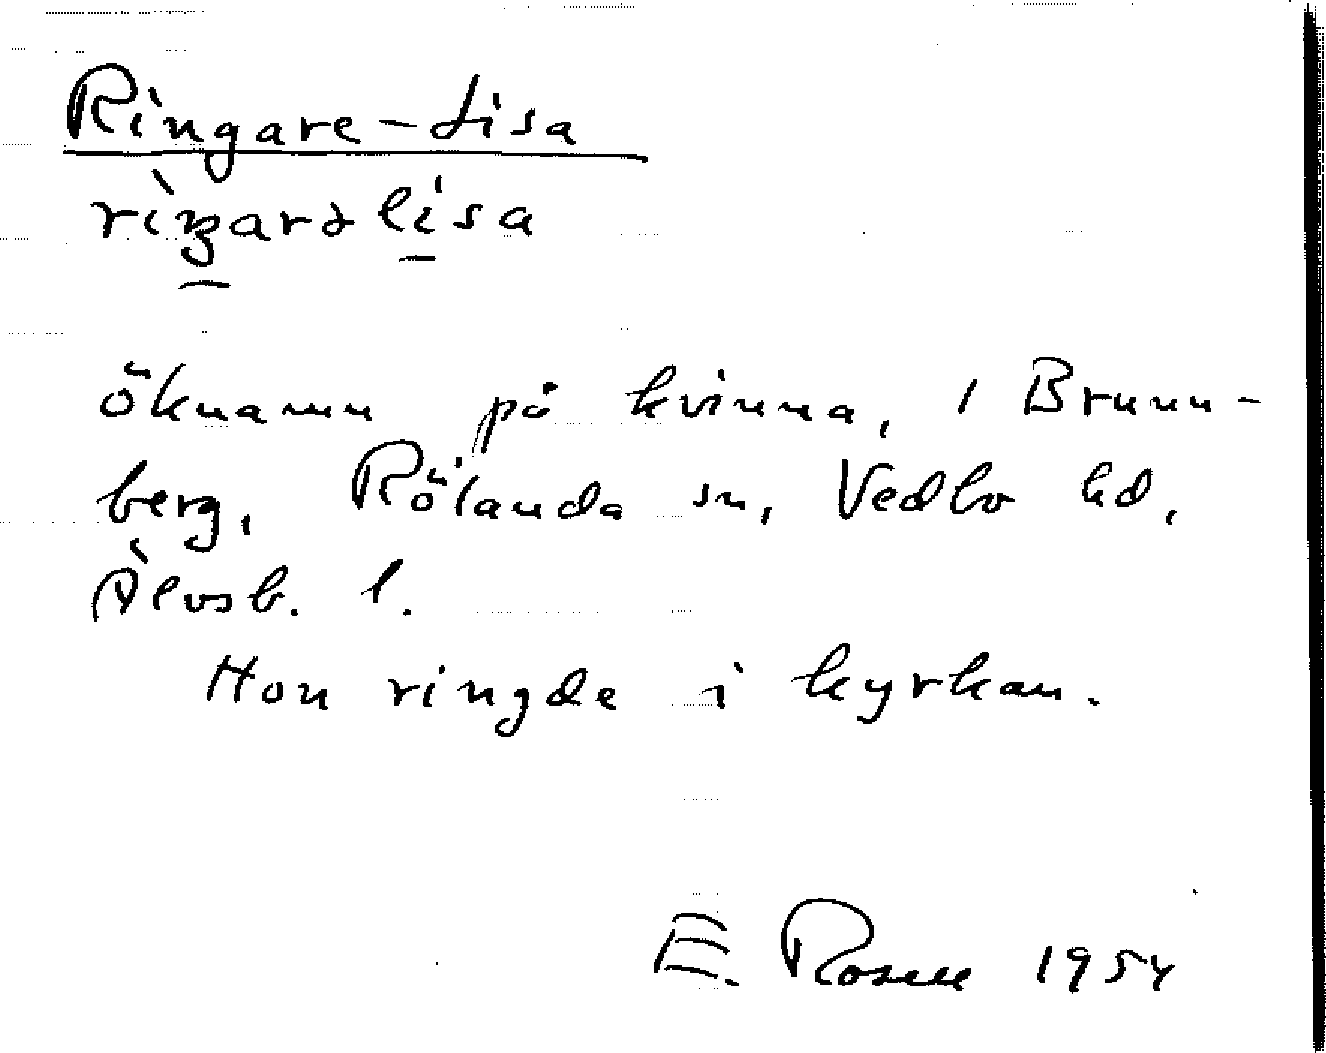 Ringare-Lisa
riŋarə lisa
öknamn på kvinna, i Brunn-
berg, Rölanda sn, Vedbo hd,
Älvsb. l.
Hon ringde i kyrkan.
E. Rosell 1954